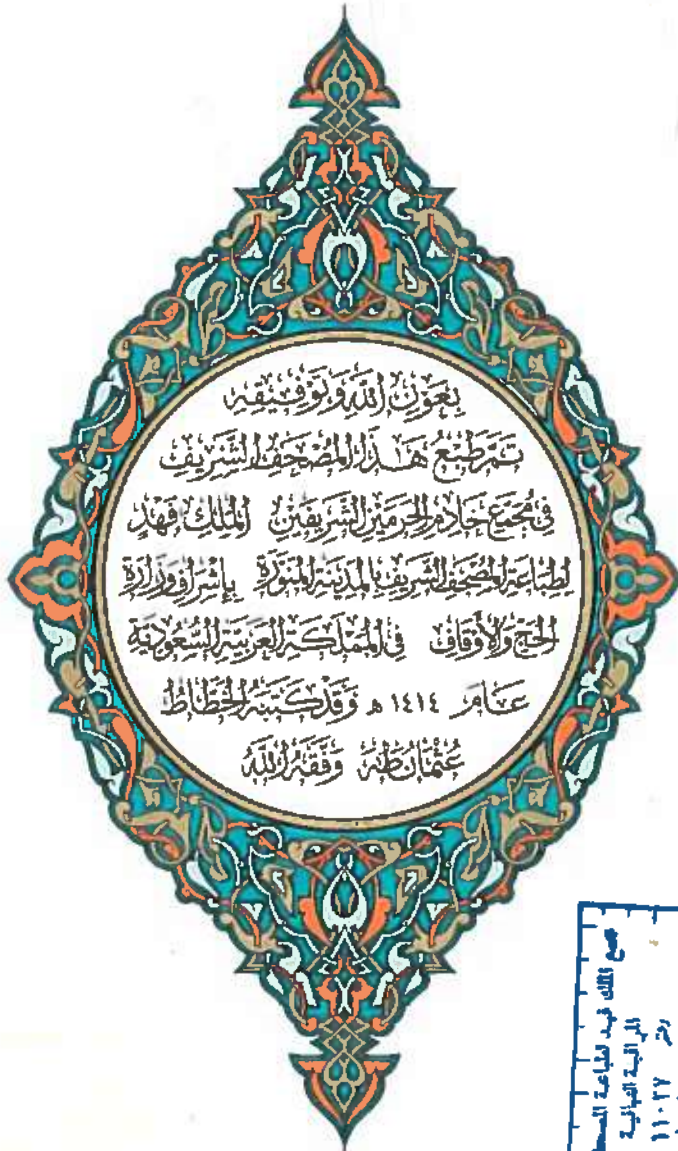 بِعَوْنِ اللَّهِ وَتَوْفِيقِهِ
تَمَّ طَبْعُ هَذَا المُصْحَفِ الشَّرِيفِ
فِي مُجَمَّعِ خَادِمِ الحَرَمَيْنِ الشَّرِيفَيْنِ المَلِكِ فَهْدٍ
لِطِبَاعَةِ المُصْحَفِ الشَّرِيفِ بِالمَدِينَةِ المُنَوَّرَةِ بِإِشْرَافِ وَزَارَةِ
الحَجِّ وَالأَوْقَافِ فِي المَمْلَكَةِ العَرَبِيَّةِ السُّعُودِيَّةِ
عَامَ ١٤١٤ ه وَقَدْ كَتَبَهُ الخَطَّاطُ
عُثْمَان طه وَفَّقَهُ اللَّهُ
مجمع الملك فهد لطباعة المصحف
المراقبة النهائية
رقم ١١٠٢٧